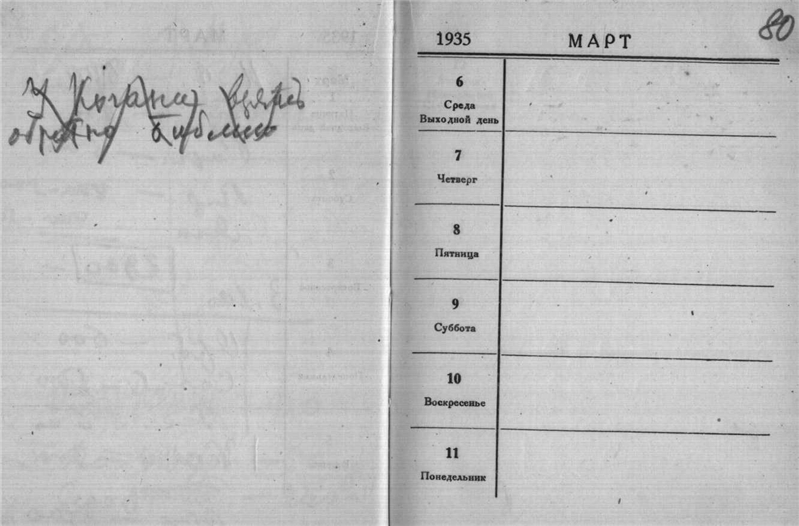 У Когана взять
обратно библию
80
1935 МАРТ
6
Среда
Выходной день
7
Четверг
8
Пятница
9
Суббота
10
Воскресенье
11
Понедельник